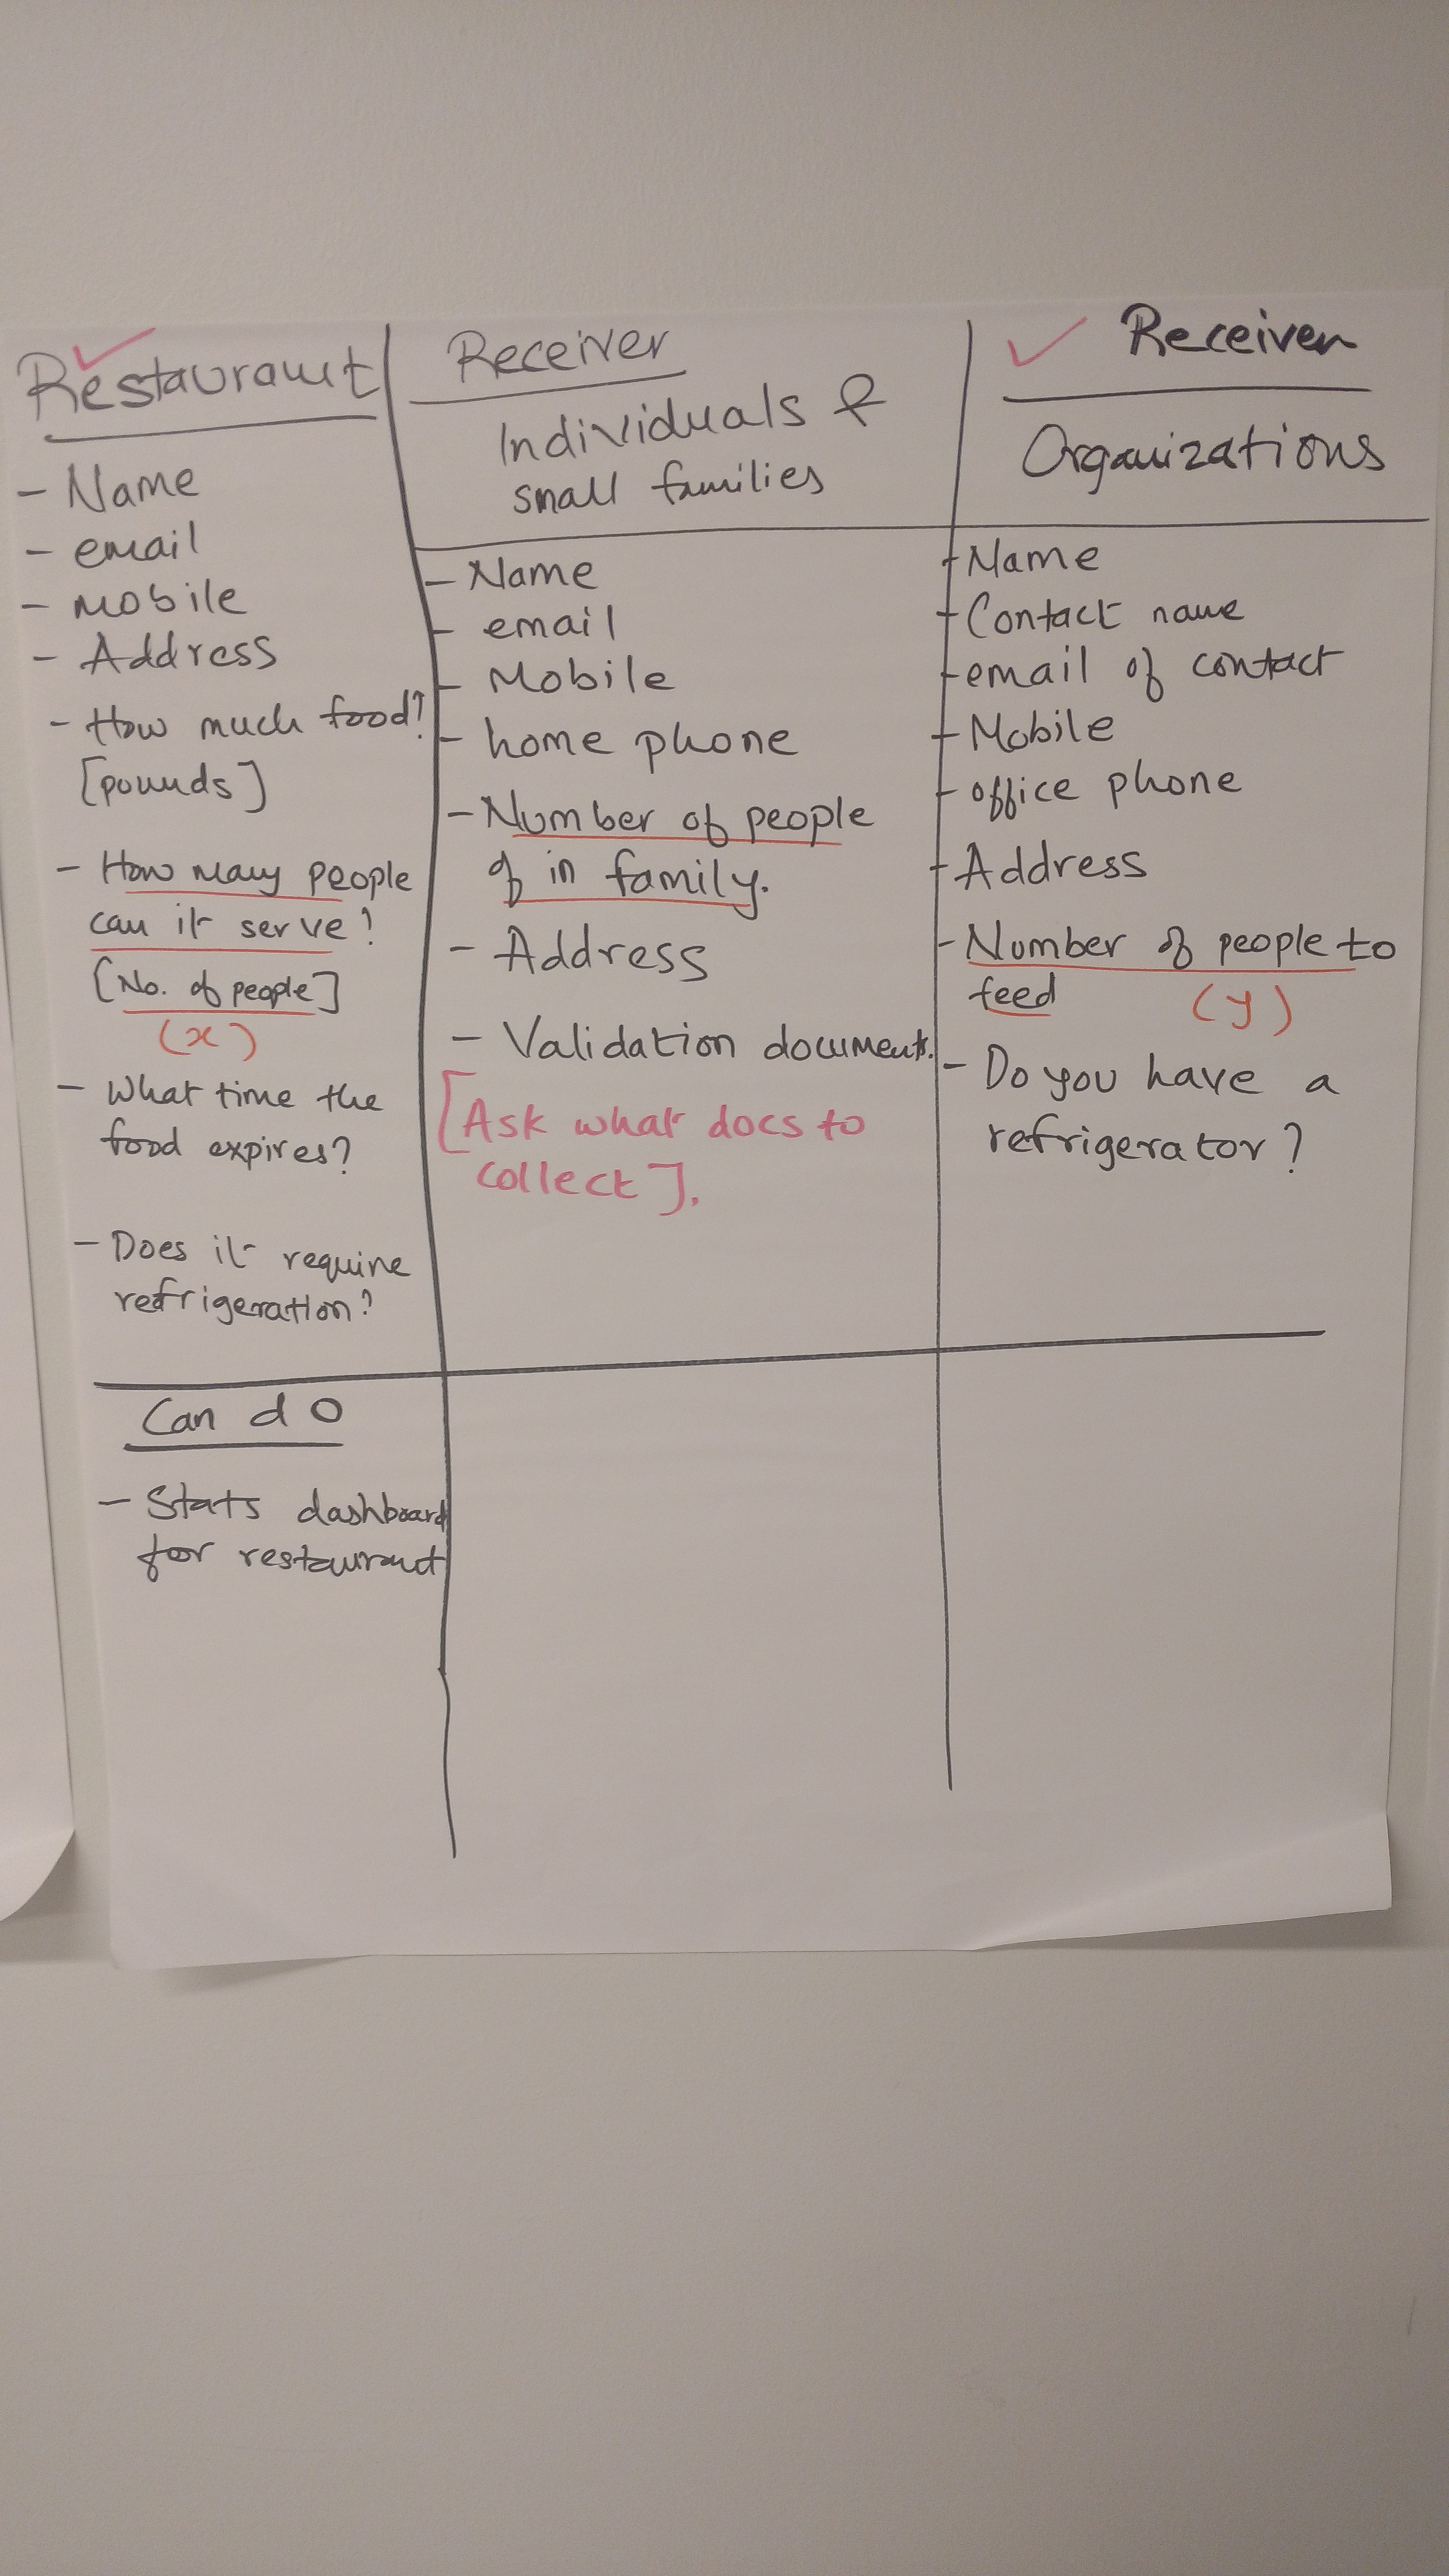 Restaurant
- Name
- email
- Mobile
- Address
- How much food?
[pounds]
- How many people
can it serve?
[No. of people]
(x)
- What time the
food expires?
- Does it require
refrigeration?
Can do
- Stats dashboard
for restaurant
Receiver
Individuals &
small families
- Name
- email
- Mobile
- home phone
- Number of people
of in family.
- Address
- Validation documents.
[Ask what docs to
collect].
Receiver
Organizations
- Name
- Contact name
- email of contact
- Mobile
- office phone
- Address
- Number of people to
feed (y)
- Do you have a
refrigerator?